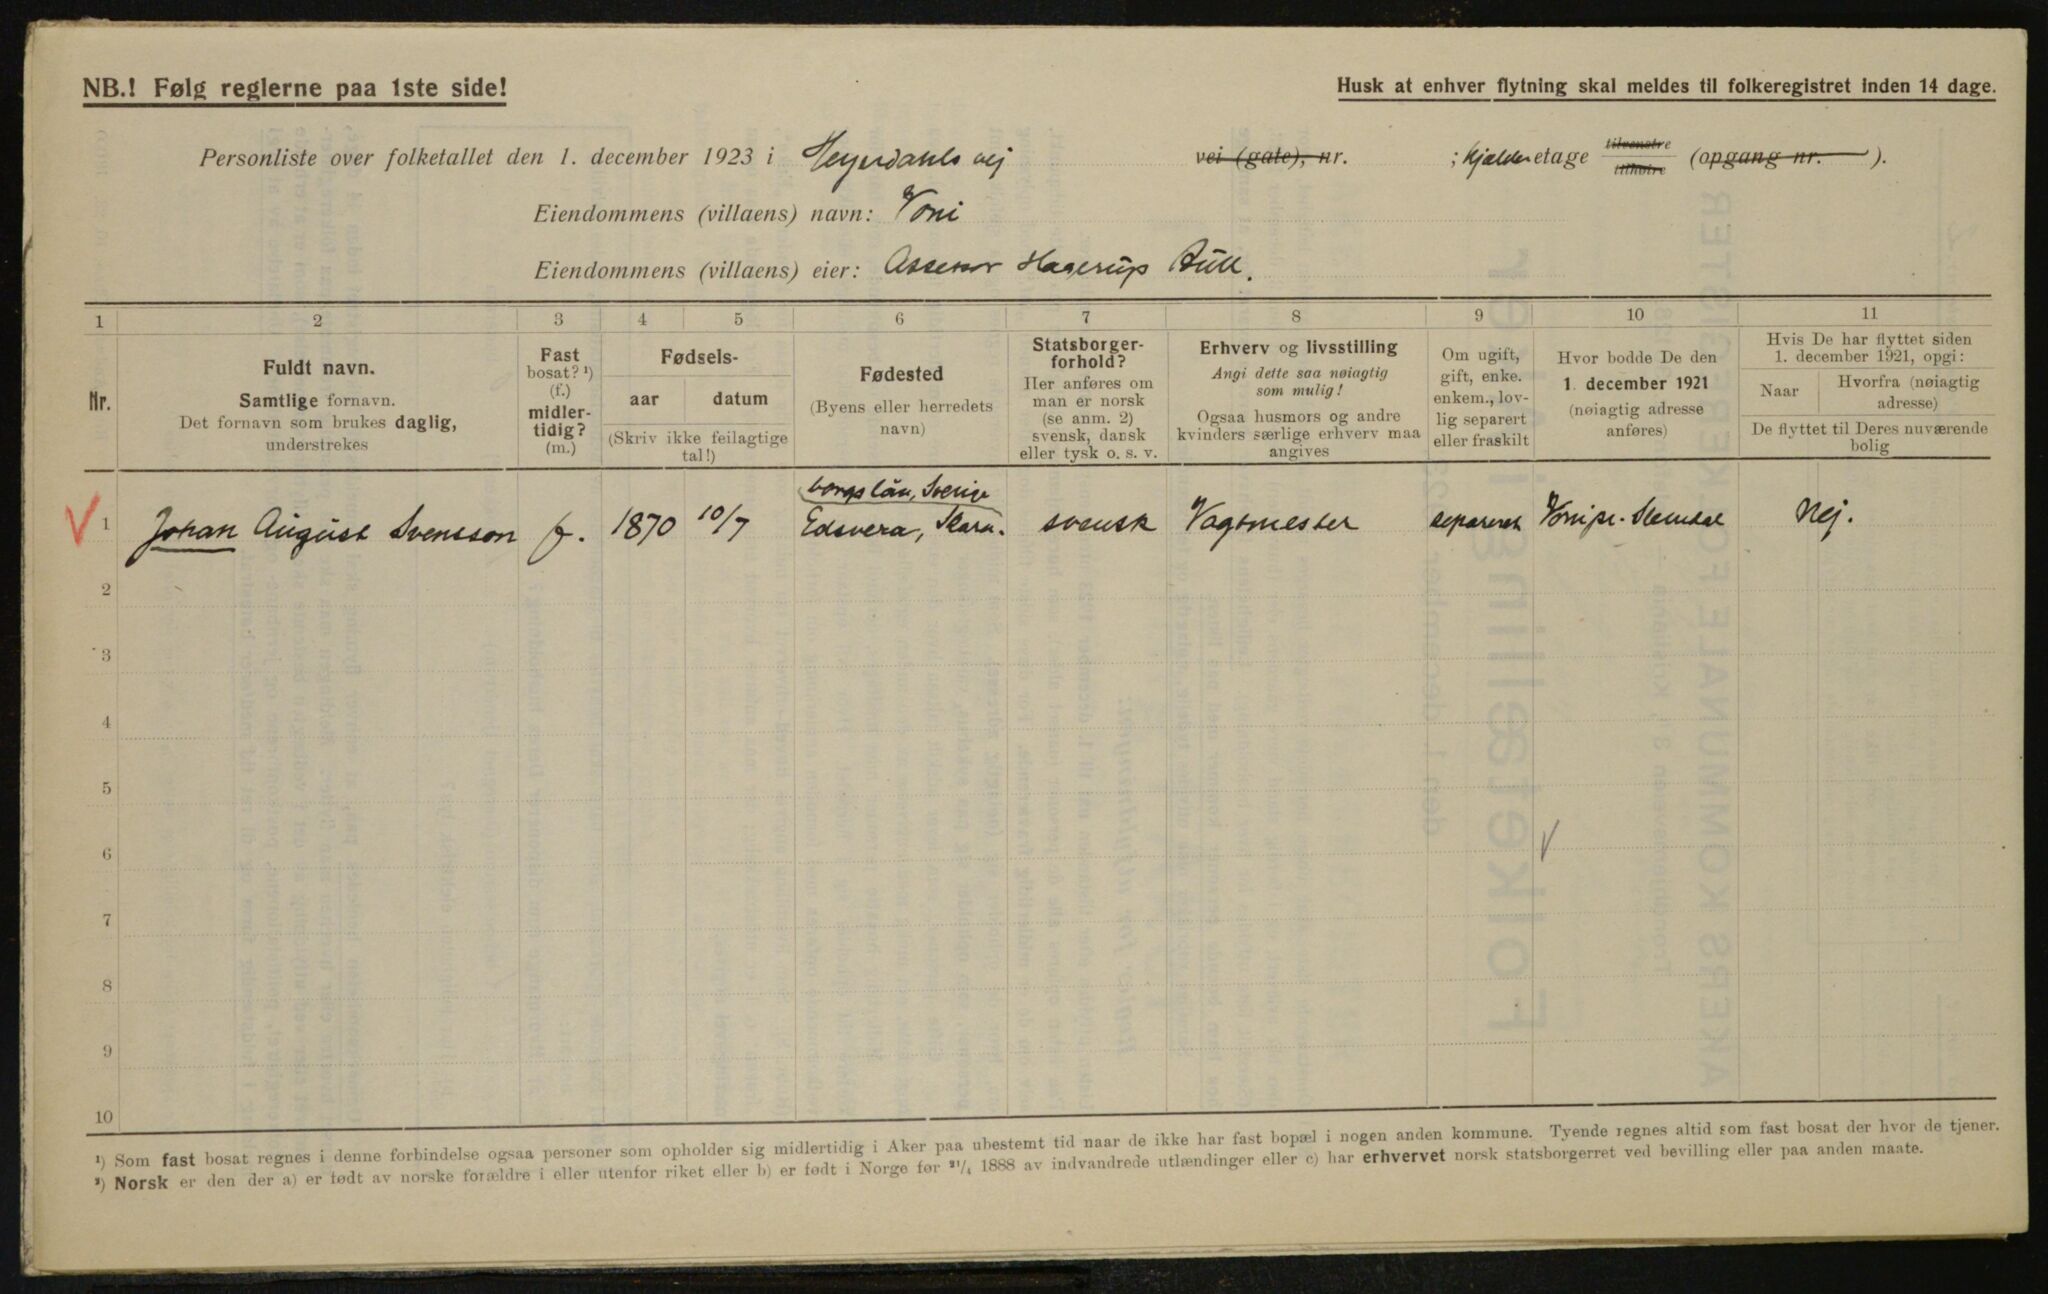 NB.! Følg reglerne paa 1ste side!
Husk at enhver flytning skal meldes til folkeregistret inden 14 dage.
Personliste over folketallet den 1. december 1923 i Heyerdahls vej vei (gate), nr. ; Kjælder etage tilvenstre tilhøire (opgang nr. ).
Eiendommens (villaens) navn: Voni
Eiendommens (villaens) eier: Assessor Hagerup Bull.
1 2 3 4 5 6 7 8 9 10 11
Nr.
Fuldt navn.
Samtlige fornavn.
Det fornavn som brukes daglig,
understrekes
Fast
bosat? ¹)
(f.)
midler-
tidig?
(m.)
Fødsels-
aar datum
(Skriv ikke feilagtige
tal!)
Fødested
(Byens eller herredets
navn)
Statsborger-
forhold?
Her anføres om
man er norsk
(se anm. 2)
svensk, dansk
eller tysk o. s. v.
Erhverv og livsstilling
Angi dette saa nøiagtig
som mulig!
Ogsaa husmors og andre
kvinders særlige erhverv maa
angives
Om ugift,
gift, enke.
enkem., lov-
lig separert
eller fraskilt
Hvor bodde De den
1. december 1921
(nøiagtig adresse
anføres)
Hvis De har flyttet siden
1. december 1921, opgi:
Naar
Hvorfra (nøiagtig
adresse)
De flyttet til Deres nuværende
bolig
borgslän, Sverige
1 Johan August Svensson f. 1870 10/7 Edsvera, Skara- svensk Vagtmester separeret Voni pr. Slemdal Nej.
2
3
4
5
6
7
8
9
10
¹) Som fast bosat regnes i denne forbindelse ogsaa personer som opholder sig midlertidig i Aker paa ubestemt tid naar de ikke har fast bopæl i nogen anden kommune. Tyende regnes altid som fast bosat der hvor de tjener.
²) Norsk er den der a) er født av norske forældre i eller utenfor riket eller b) er født i Norge før ²¹/₄ 1888 av indvandrede utlændinger eller c) har erhvervet norsk statsborgerret ved bevilling eller paa anden maate.